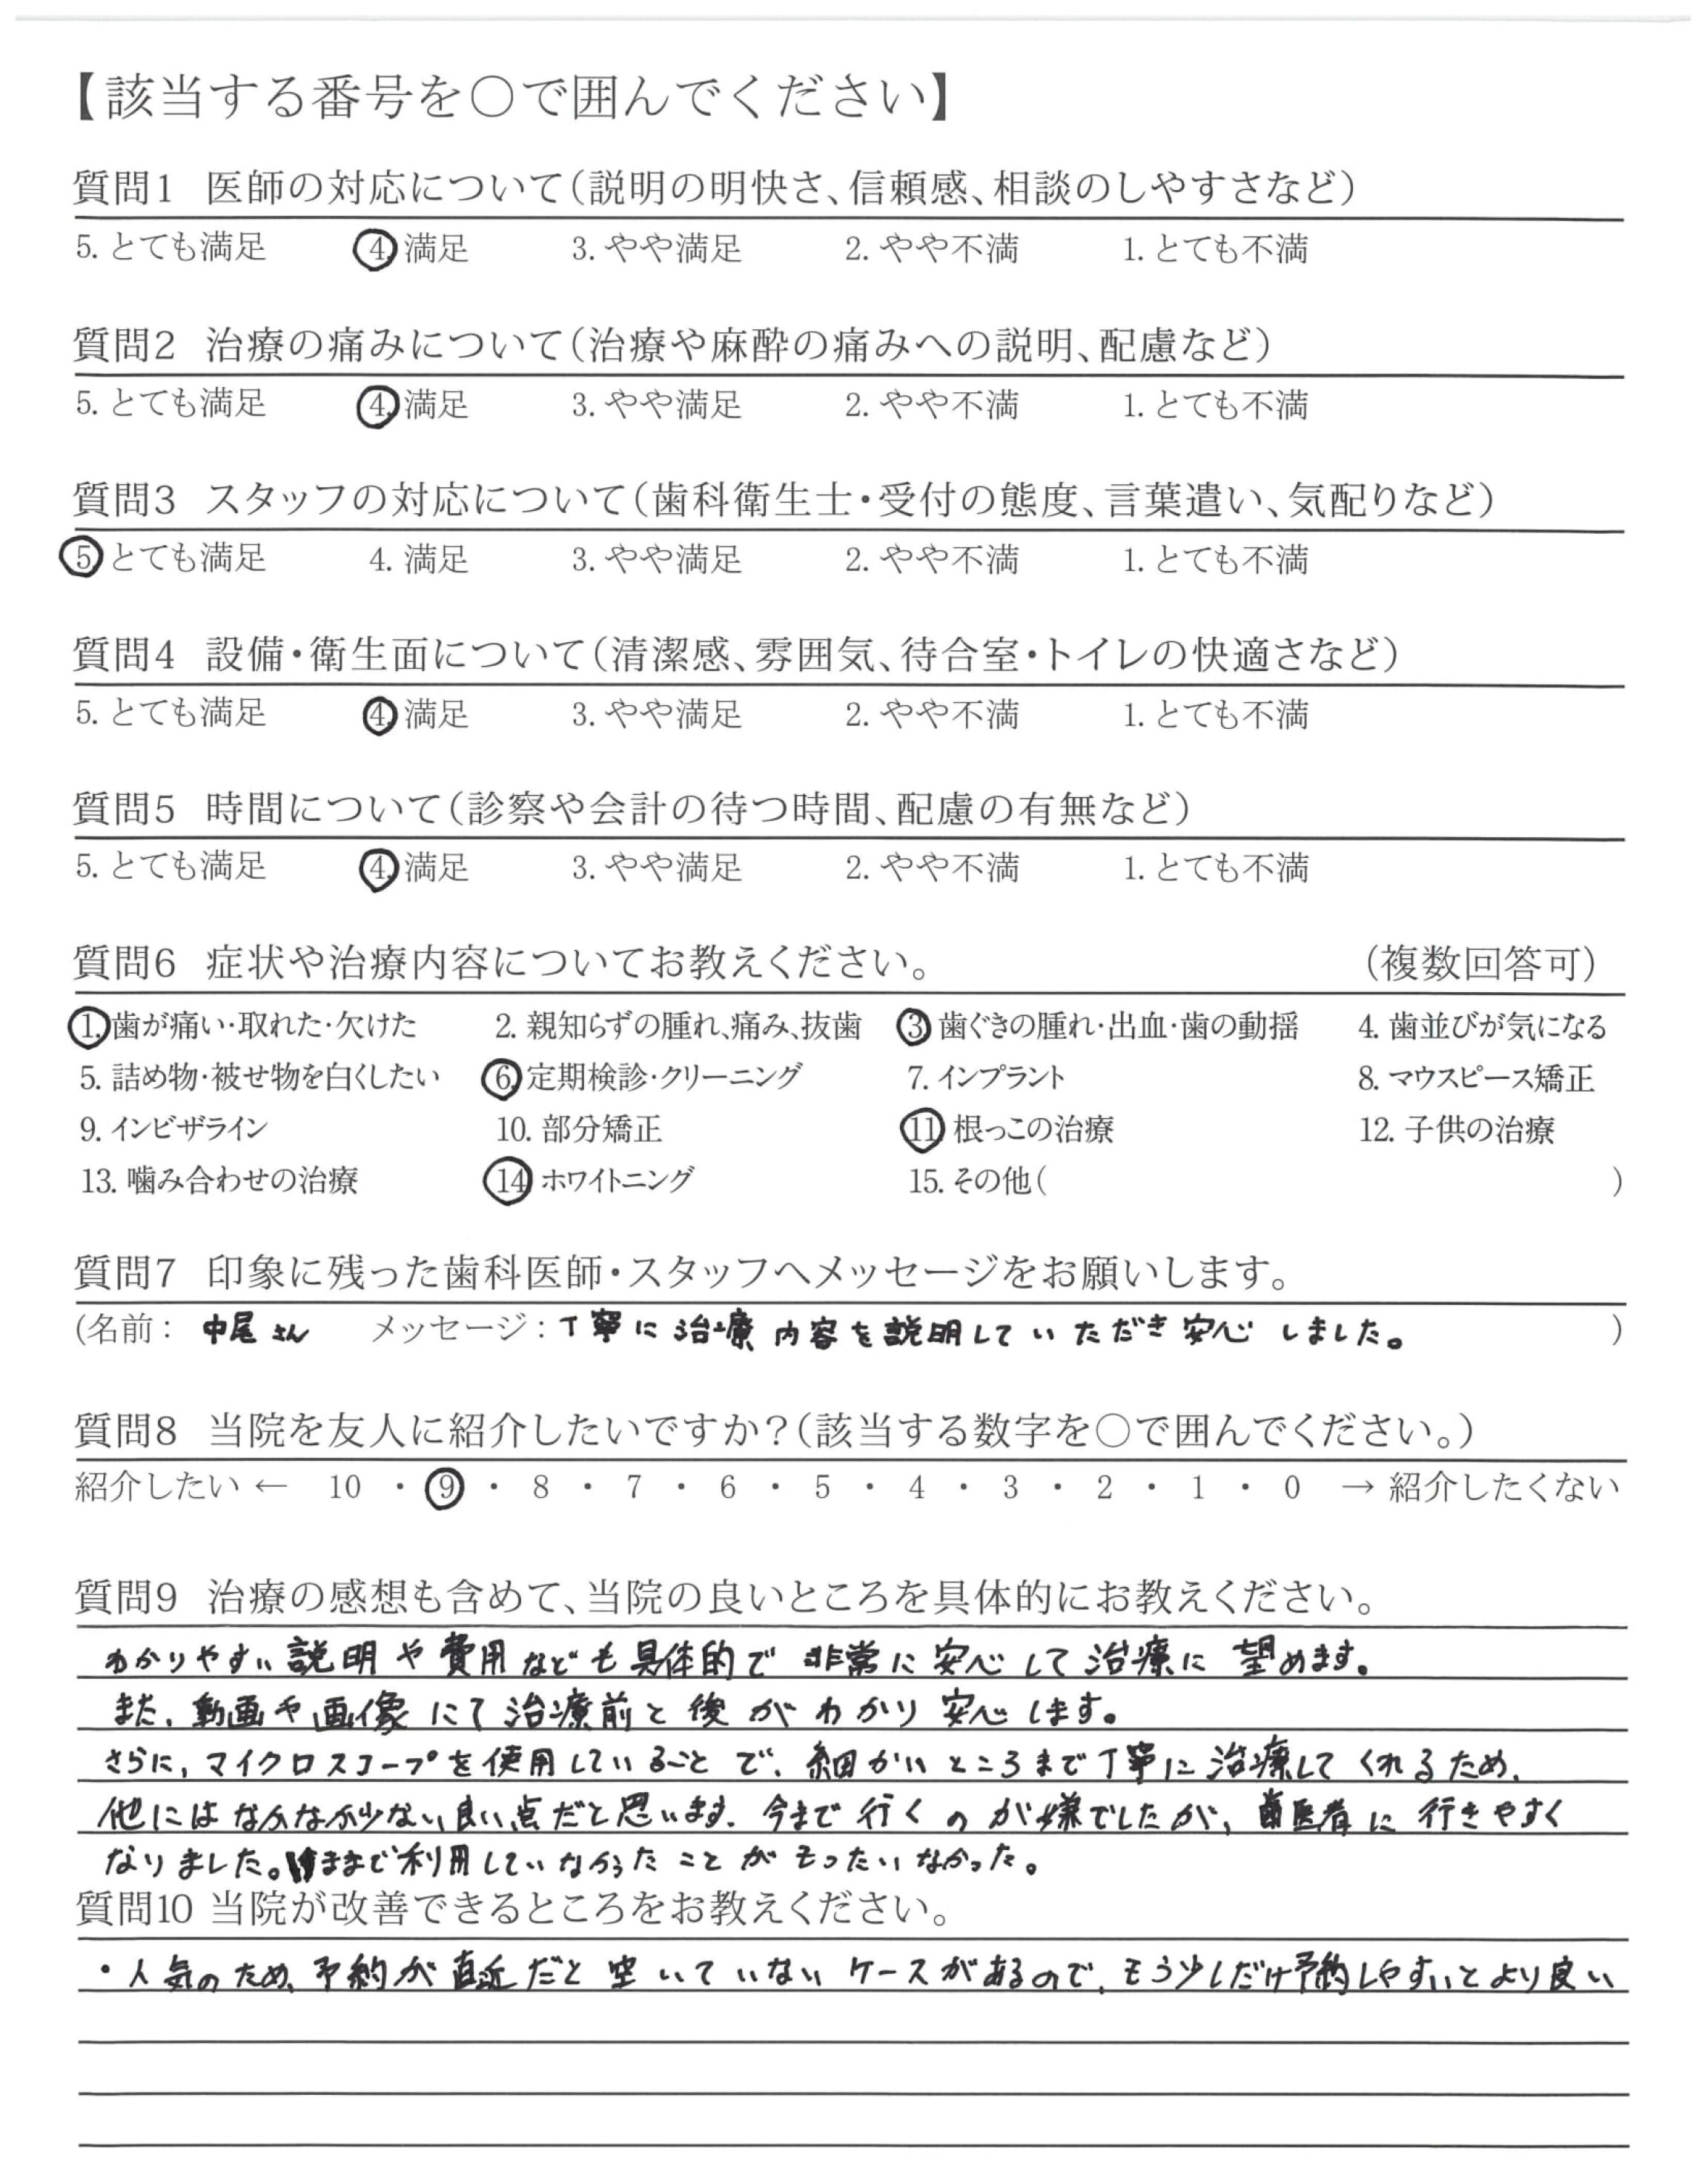 【該当する番号を○で囲んでください】
質問1 医師の対応について(説明の明快さ、信頼感、相談のしやすさなど)
5. とても満足 4. 満足 3. やや満足 2. やや不満 1. とても不満
質問2 治療の痛みについて(治療や麻酔の痛みへの説明、配慮など)
5. とても満足 4. 満足 3. やや満足 2. やや不満 1. とても不満
質問3 スタッフの対応について(歯科衛生士・受付の態度、言葉遣い、気配りなど)
5 とても満足 4. 満足 3. やや満足 2. やや不満 1. とても不満
質問4 設備・衛生面について(清潔感、雰囲気、待合室・トイレの快適さなど)
5. とても満足 4. 満足 3. やや満足 2. やや不満 1. とても不満
質問5 時間について(診察や会計の待つ時間、配慮の有無など)
5. とても満足 4. 満足 3. やや満足 2. やや不満 1. とても不満
質問6 症状や治療内容についてお教えください。 (複数回答可)
1. 歯が痛い・取れた・欠けた 2. 親知らずの腫れ、痛み、抜歯 3 歯ぐきの腫れ・出血・歯の動揺 4. 歯並びが気になる
5. 詰め物・被せ物を白くしたい 6. 定期検診・クリーニング 7. インプラント 8. マウスピース矯正
9. インビザライン 10. 部分矯正 11 根っこの治療 12. 子供の治療
13. 噛み合わせの治療 14 ホワイトニング 15. その他( )
質問7 印象に残った歯科医師・スタッフへメッセージをお願いします。
(名前: 中尾さん メッセージ: 丁寧に治療内容を説明していただき安心しました。 )
質問8 当院を友人に紹介したいですか?(該当する数字を○で囲んでください。)
紹介したい ← 10 ・ 9 ・ 8 ・ 7 ・ 6 ・ 5 ・ 4 ・ 3 ・ 2 ・ 1 ・ 0 → 紹介したくない
質問9 治療の感想も含めて、当院の良いところを具体的にお教えください。
わかりやすい説明や費用なども具体的で非常に安心して治療に望めます。
また、動画や画像にて治療前と後がわかり安心します。
さらに、マイクロスコープを使用していることで、細かいところまで丁寧に治療してくれるため、
他にはなかなか少ない良い点だと思います。今まで行くのが嫌でしたが、歯医者に行きやすく
なりました。今まで利用していなかったことがもったいなかった。
質問10 当院が改善できるところをお教えください。
・人気のため、予約が直近だと空いていないケースがあるので、もう少しだけ予約しやすいとより良い